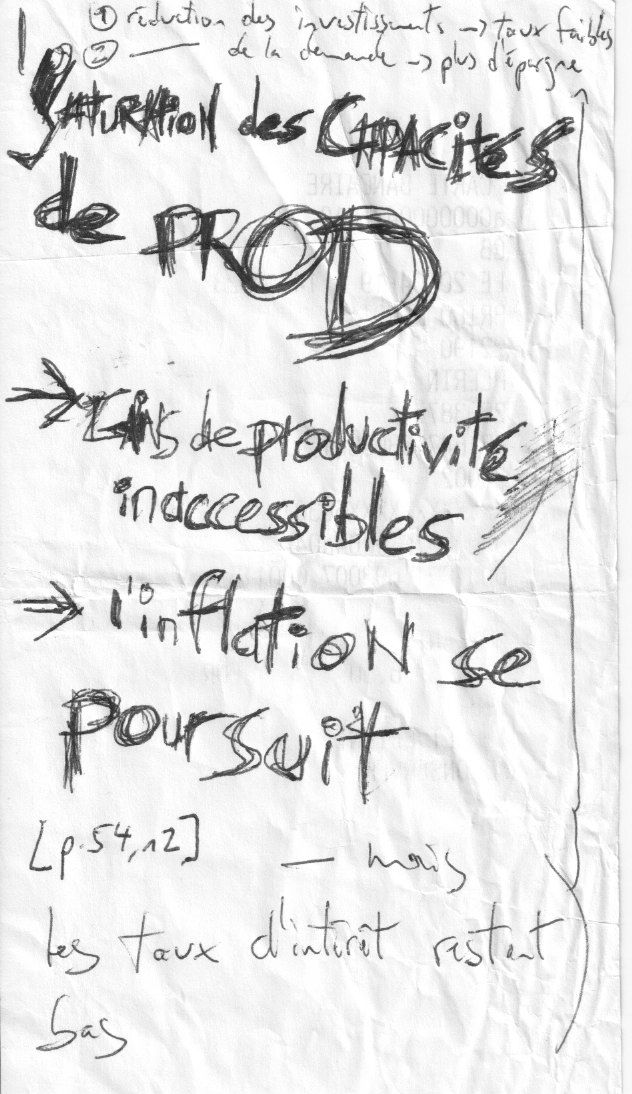 ① réduction des investissments → taux faibles
② —— de la demande → plus d'épargne
SATURATION des CAPACités
de PROD
→ GAiNs de productivité
inaccessibles
→ l'inflATiON se
poursuit
[p.54,12] — mais
les taux d'intérêt restent
bas
CARTE BANCAIRE